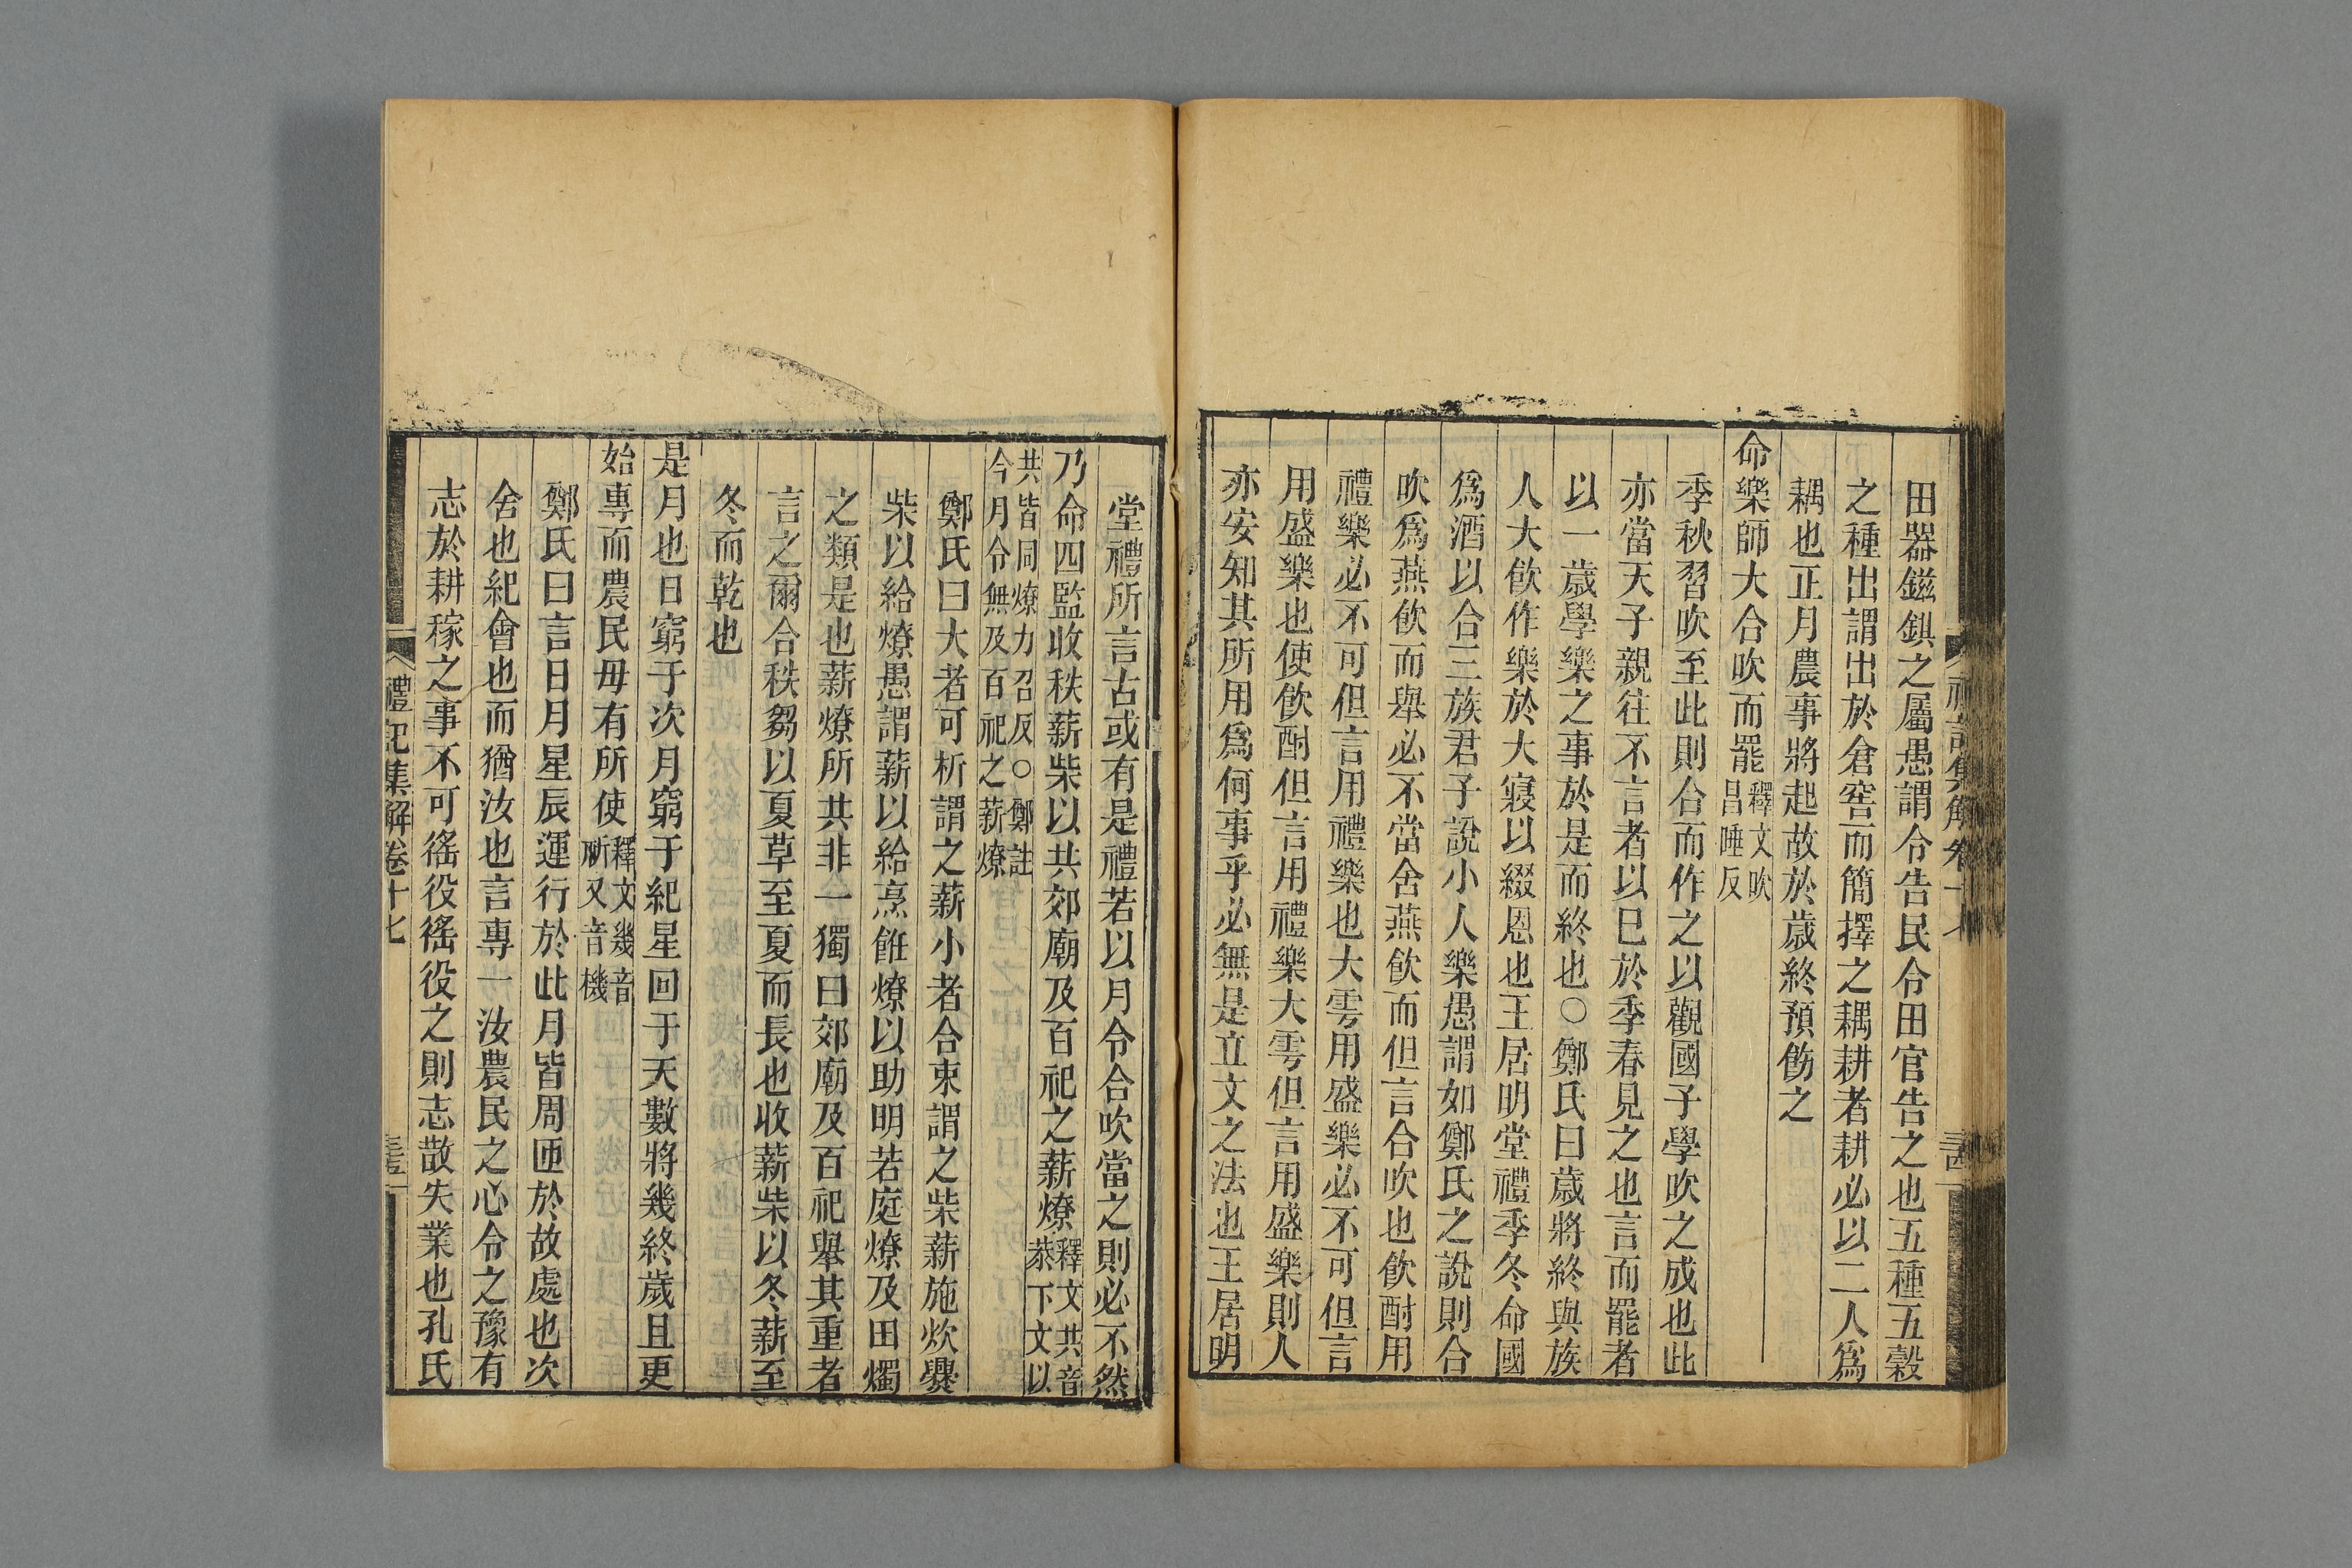 田器鎡錤之屬愚謂令告民令田官告之也五種五穀
之種出謂出於倉窖而簡擇之耦耕者耕必以二人爲
耦也正月農事將起故於歲終預飭之
命樂師大合吹而罷釋文吹昌睡反
季秋習吹至此則合而作之以觀國子學吹之成也此
亦當天子親往不言者以巳於季春見之也言而罷者
以一歲學樂之事於是而終也○鄭氏曰歲將終與族
人大飮作樂於大寢以綴恩也王居明堂禮季冬命國
爲酒以合三族君子說小人樂愚謂如鄭氏之說則合
吹爲燕飮而舉必不當舍燕飮而但言合吹也飮酎用
禮樂必不可但言用禮樂也大雩用盛樂必不可但言
用盛樂也使飮酎但言用禮樂大雩但言用盛樂則人
亦安知其所用爲何事乎必無是立文之法也王居明
堂禮所言古或有是禮若以月令合吹當之則必不然
乃命四監收秩薪柴以共郊廟及百祀之薪燎釋文共音恭下文以
共皆同燎力召反○鄭註今月令無及百祀之薪燎
鄭氏曰大者可析謂之薪小者合束謂之柴薪施炊爨
柴以給燎愚謂薪以給烹飪燎以助明若庭燎及田燭
之類是也薪燎所共非一獨曰郊廟及百祀舉其重者
言之爾合秩芻以夏草至夏而長也收薪柴以冬薪至
冬而乾也
是月也日窮于次月窮于紀星回于天數將幾終歲且更
始專而農民毋有所使釋文幾音祈又音機
鄭氏曰言日月星辰運行於此月皆周匝於故處也次
舍也紀會也而猶汝也言專一汝農民之心令之豫有
志於耕稼之事不可徭役徭役之則志散失業也孔氏
禮記集解卷十七